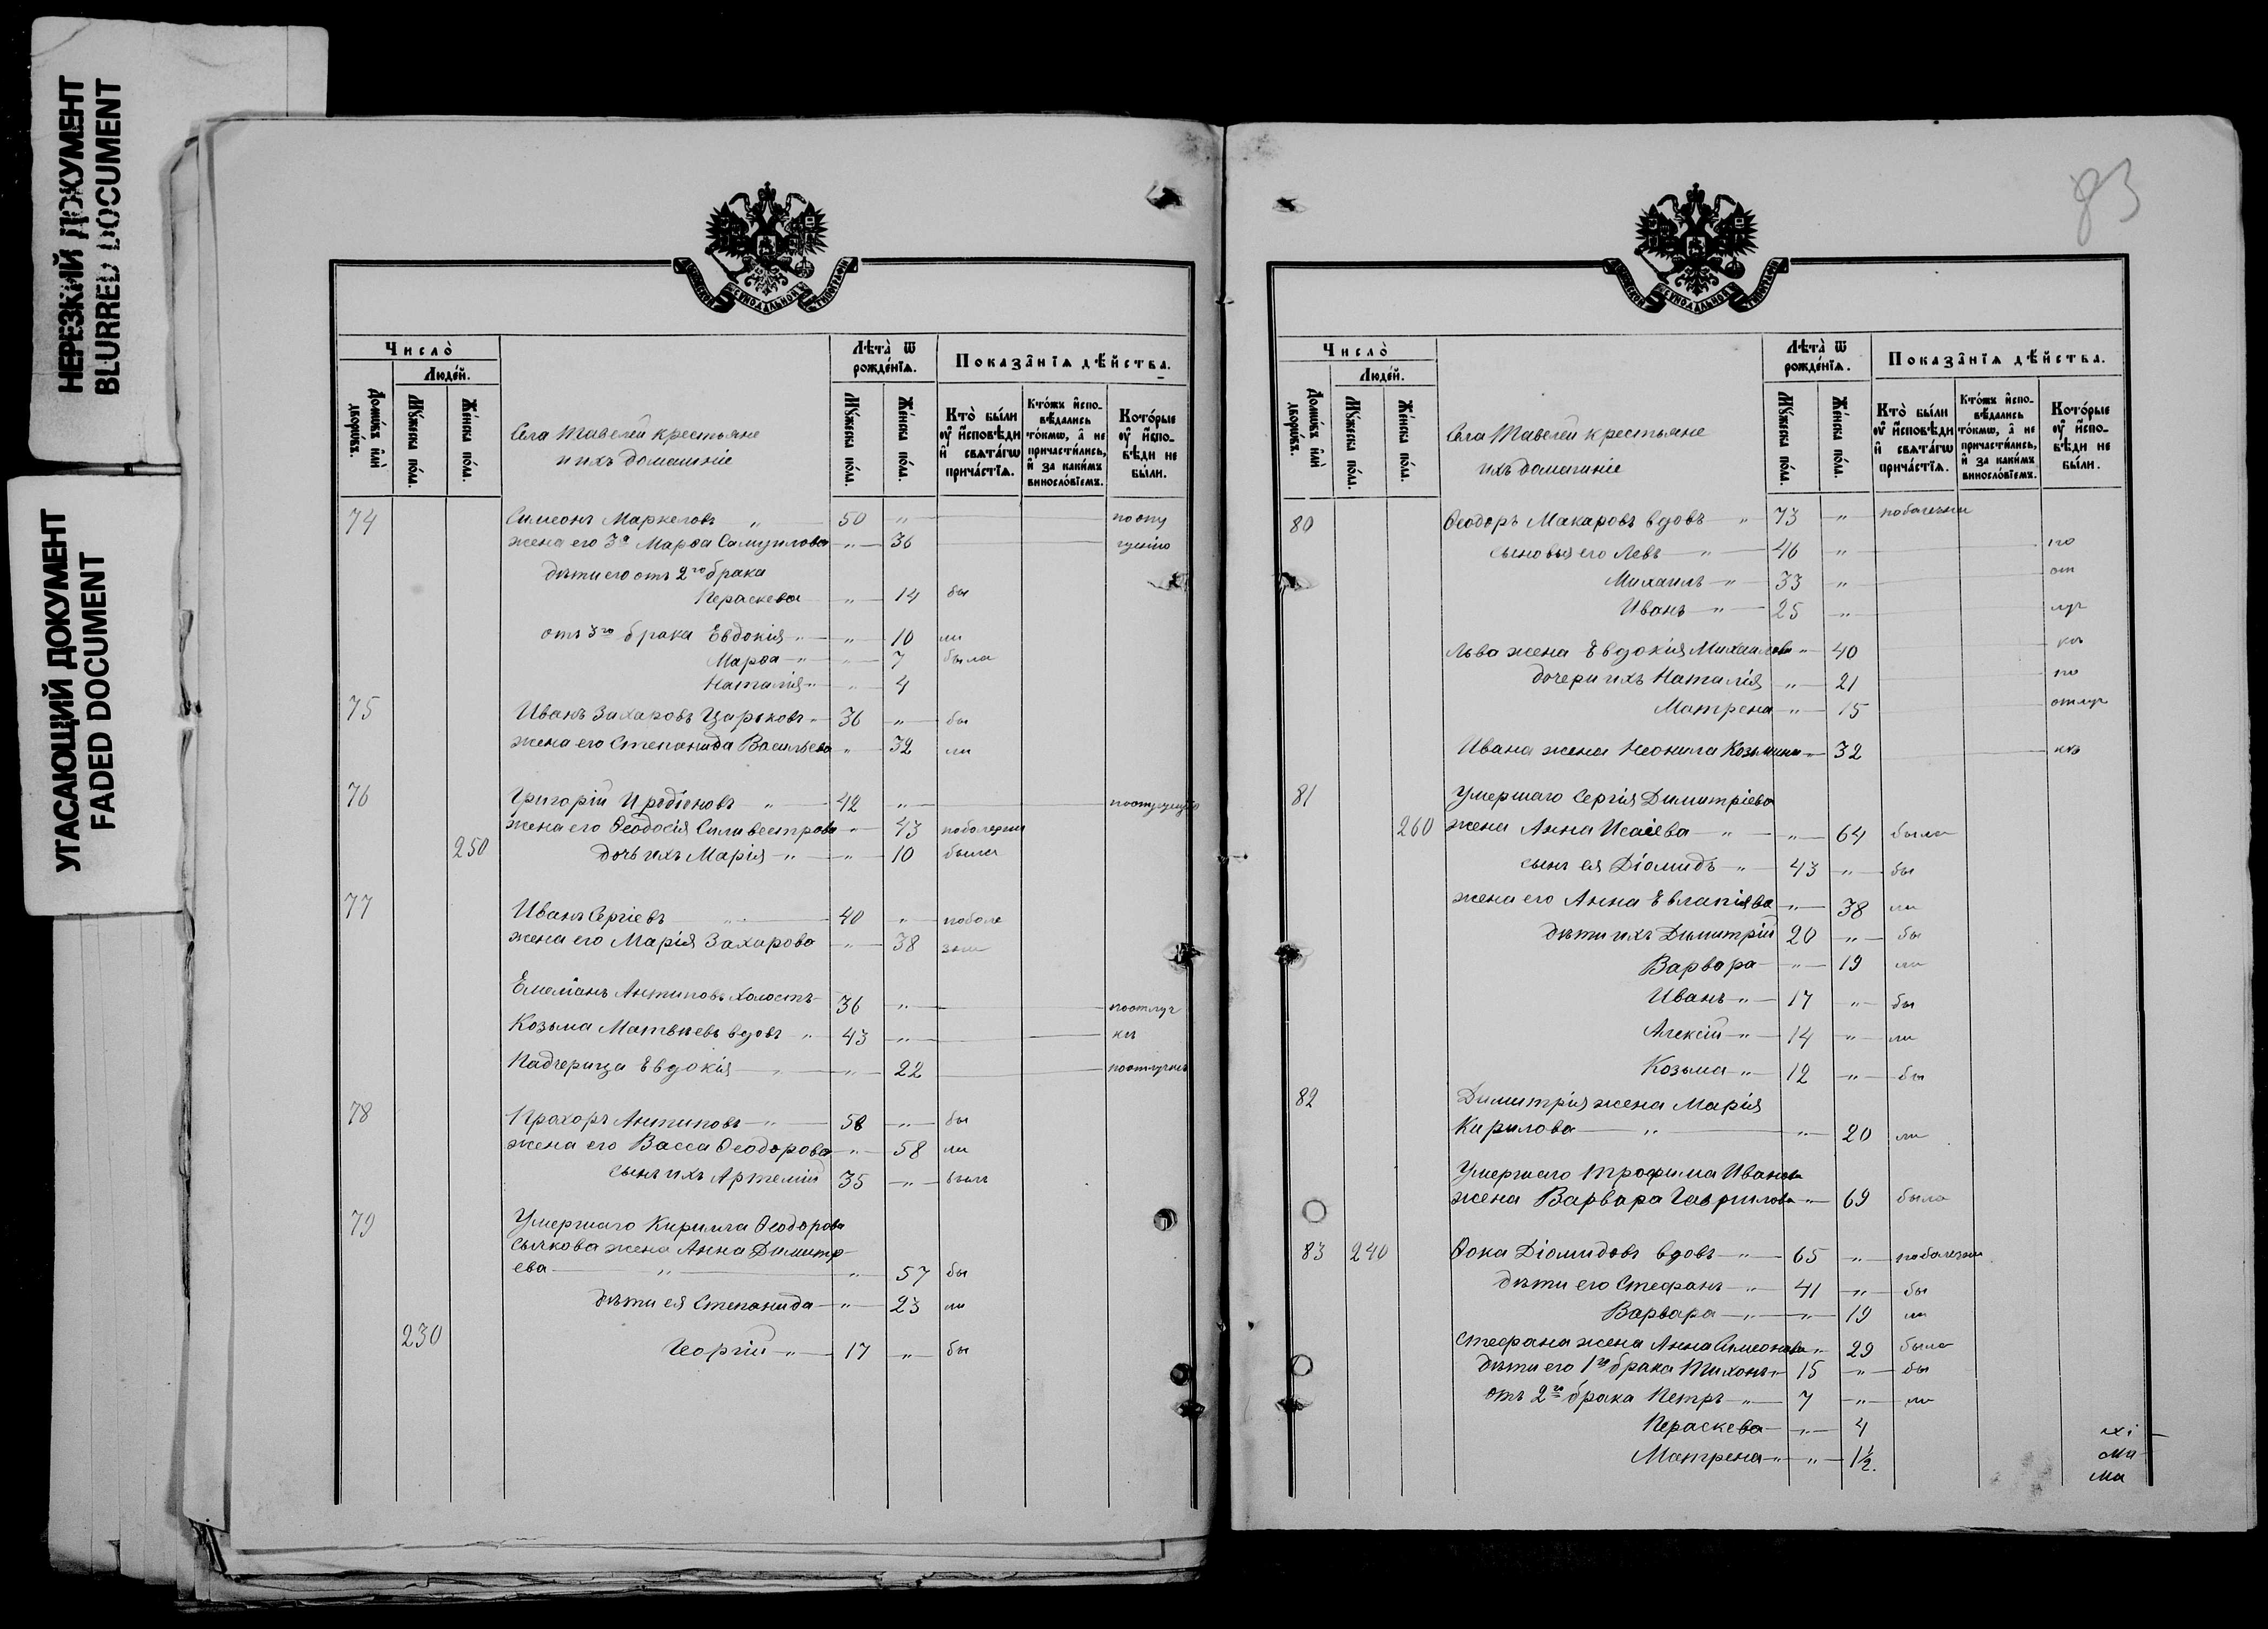 НЕРЕЗКИЙ ДОКУМЕНТ
BLURRED DOCUMENT
УГАСАЮЩИЙ ДОКУМЕНТ
FADED DOCUMENT
Число̀
Людѐй.
Домѡ́въ и҆лѝ дворѡ́въ.
Мꙋ́жеска по́ла.
Же́нска по́ла.
Села Тавелей крестьяне
и ихъ домашніе
Лѣта̀ ѿ рожде́нїѧ.
Мꙋ́жеска по́ла.
Же́нска по́ла.
Показа̂нїѧ дѣ́йства.
Кто̀ бы́ли оу҆ и҆сповѣ́ди и҆ свѧта́гѡ прича́стїѧ.
Кто́жъ и҆сповѣ́дались то́кмѡ, а҆ не причасти́лись, и҆ за каки́мъ виносло́вїемъ.
Кото́рые оу҆ и҆сповѣ́ди не бы́ли.
74 Симеонъ Маркеловъ " 50 " по опу
жена его 3я Марѳа Самуилова " 36 щенію
дѣти его отъ 2го брака
Параскева " 14 бы
отъ 3го брака Евдокія " " 10 ли
Марѳа " " 7 была
Наталія " " 4
75 Иванъ Захаровъ Царьковъ " 36 " бы
жена его Степанида Васильева " 32 ли
76 Григорій Иродіоновъ " 42 "
жена его Ѳеодосія Силивестрова " 43 по болезни
250 дочь ихъ Марія " " 10 была
77 Иванъ Сергіевъ " 40 " по боле
жена его Марія Захарова " 38 зни
Емеліанъ Антиповъ холостъ 36 " по отлуч
Козьма Матвѣевъ вдовъ " 43 " кѣ
Падчерица Евдокія " " 22 по отлучкѣ
78 Прохоръ Антиповъ " 58 " бы
жена его Васса Ѳеодорова " 58 ли
сынъ ихъ Артемій 35 " былъ
79 Умершаго Кирилла Ѳеодорова
Сычкова жена Анна Димитр-
ева " " 57 бы
дѣти ея Степанида " 23 ли
230 Георгій " 17 " бы
83
Число̀
Людѐй.
Домѡ́въ и҆лѝ дворѡ́въ.
Мꙋ́жеска по́ла.
Же́нска по́ла.
Села Тавелей крестьяне
ихъ домашніе
Лѣта̀ ѿ рожде́нїѧ.
Мꙋ́жеска по́ла.
Же́нска по́ла.
Показа̂нїѧ дѣ́йства.
Кто̀ бы́ли оу҆ и҆сповѣ́ди и҆ свѧта́гѡ прича́стїѧ.
Кто́жъ и҆сповѣ́дались то́кмѡ, а҆ не причасти́лись, и҆ за каки́мъ виносло́вїемъ.
Кото́рые оу҆ и҆сповѣ́ди не бы́ли.
80 Ѳеодоръ Макаровъ вдовъ " 73 " по болезни
сыновья его Левъ " 46 " по
Михаилъ " 33 " от
Иванъ " 25 " луч
Льва жена Евдокія Михаилова " 40 кѣ
дочери ихъ Наталія " 21 по
Матрена " 15 отлуч
Ивана жена Неонила Козьмина " 32 кѣ
81 Умершаго Сергія Димитріева
260 жена Анна Исаіева " " 64 была
сынъ ея Діомидъ " 43 " бы
жена его Анна Евлапіева " 38 ли
дѣти ихъ Димитрій 20 " бы
Варвара " 19 ли
Иванъ " 17 " бы
Алексій " 14 " ли
Козьма " 12 " бы
82 Димитрія жена Марія
Кирилова " " 20 ли
Умершаго Трофима Иванова
жена Варвара Гаврилова " 69 была
83 240 Ѳока Діомидовъ вдовъ " 65 " по болезни
дѣти его Стефанъ " 41 " бы
Варвара " " 19 ли
Стефана жена Анна Симеонова " 29 была
дѣти его 1го брака Тихонъ " 15 " бы
отъ 2го брака Петръ " 7 " ли
Параскева " 4
Матрена " " 1½.